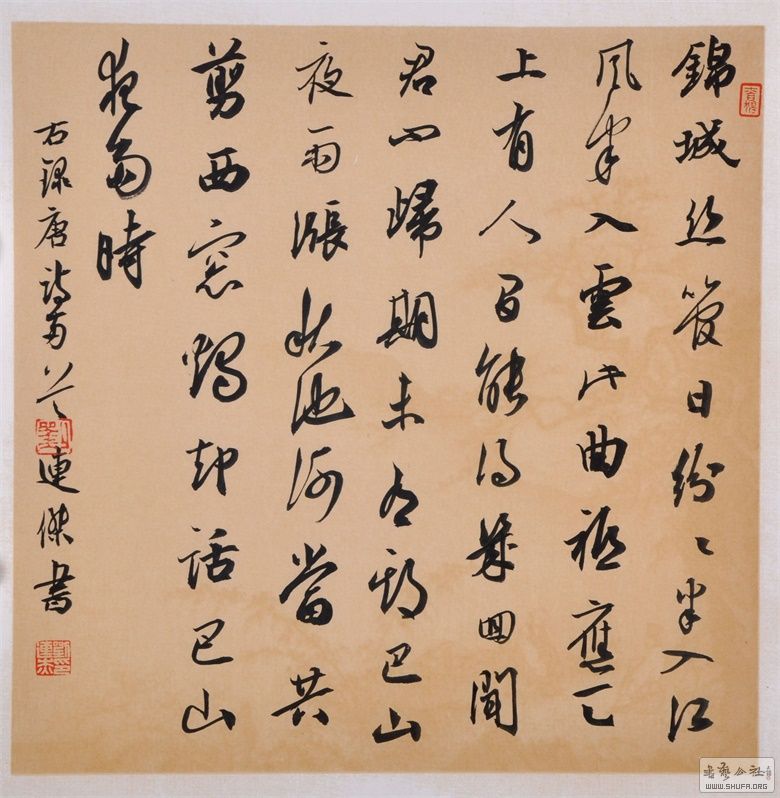 錦城丝管日紛〻半入江
風半入雲此曲祗應天
上有人间能得幾回聞
君问歸期未有期巴山
夜雨漲秋池何當共
剪西窓燭却話巴山
夜雨時
右録唐詩两首 連傑書
书艺公社
WWW.SHUFA.ORG